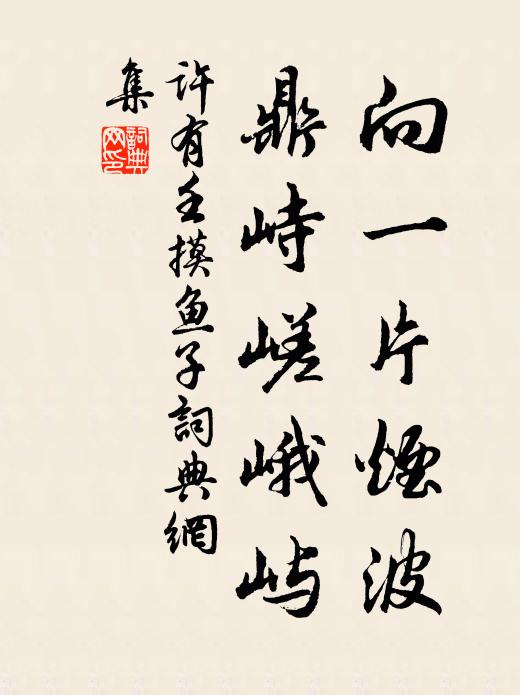 向一片煙波
鼎峙嵯峨屿
许有壬摸鱼子詞典網
集
詞典
网印